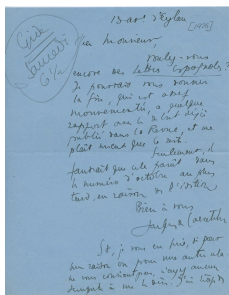 13 av. d'Eylau
[1926]
Cher Monsieur,
voulez-vous
encore des Lettres Espagnoles ?
Je pourrais vous donner
la fin, qui est assez
mouvementée, a quelque
rapport avec le récit déjà
publié dans la Revue, et me
plaît mieux que le reste.
Seulement, il
faudrait que cela parût dans
le numéro d'octobre au plus
tard, en raison de l'édition
Bien à vous
Jacques de Lacretelle
Et, je vous en prie, si pour
une raison ou pour une autre cela
ne vous convient pas, n'ayez aucun
scrupule à me le dire.